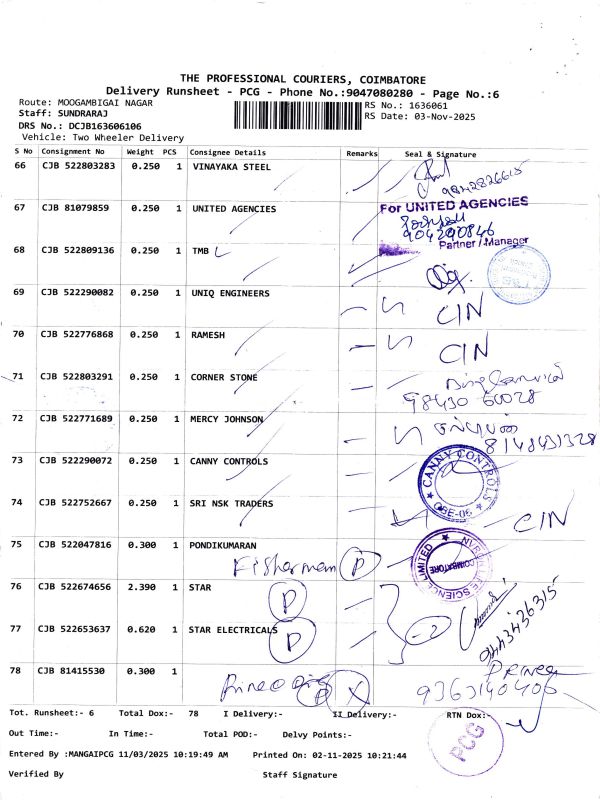 THE PROFESSIONAL COURIERS, COIMBATORE
Delivery Runsheet - PCG - Phone No.:9047080280 - Page No.:6
Route: MOOGAMBIGAI NAGAR
RS No.: 1636061
Staff: SUNDRARAJ
RS Date: 03-Nov-2025
DRS No.: DCJB163606106
Vehicle: Two Wheeler Delivery
S No Consignment No Weight PCS Consignee Details Remarks Seal & Signature
66 CJB 522803283 0.250 1 VINAYAKA STEEL
9842826615
67 CJB 81079859 0.250 1 UNITED AGENCIES
For UNITED AGENCIES
904200846
Partner / Manager
68 CJB 522809136 0.250 1 TMB
69 CJB 522290082 0.250 1 UNIQ ENGINEERS
CIN
70 CJB 522776868 0.250 1 RAMESH
CIN
71 CJB 522803291 0.250 1 CORNER STONE
98430 60028
72 CJB 522771689 0.250 1 MERCY JOHNSON
8148451328
73 CJB 522290072 0.250 1 CANNY CONTROLS
CANNY CONTROLS
CBE-06
74 CJB 522752667 0.250 1 SRI NSK TRADERS
CIN
75 CJB 522047816 0.300 1 PONDIKUMARAN
Fisherman P
COIMBATORE
76 CJB 522674656 2.390 1 STAR
P
77 CJB 522653637 0.620 1 STAR ELECTRICALS
P
-2
9443436315
78 CJB 81415530 0.300 1
P X
9363140406
Tot. Runsheet:- 6 Total Dox:- 78 I Delivery:- II Delivery:- RTN Dox:-
Out Time:- In Time:- Total POD:- Delvy Points:-
PCG
Entered By :MANGAIPCG 11/03/2025 10:19:49 AM Printed On: 02-11-2025 10:21:44
Verified By Staff Signature